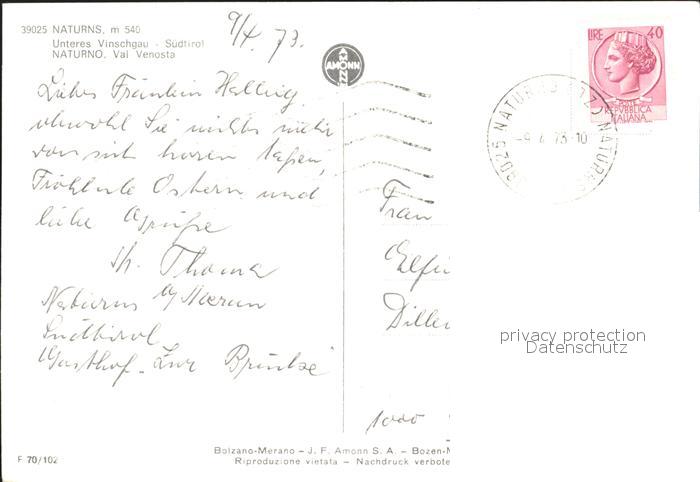 39025 NATURNS, m 540
Unteres Vinschgau - Südtirol
NATURNO, Val Venosta
9/4. 73.
AMONN
AMONN
LIRE 40
POSTE
REPUBBLICA
ITALIANA
39025 NATURNS (BZ) NATURNO
-9. 4. 73-10
Liebes Fräulein Hellwig,
obwohl Sie nichts mehr
von sich hören laßen,
Fröhliche Ostern und
liebe Grüße
Th. Thoma
Naturns b/Meran
Südtirol
Gasthof "Zur Brücke"
Frau
Elfri
Diller
1000
privacy protection
Datenschutz
F 70/102
Bolzano-Merano – J. F. Amonn S. A. – Bozen-M
Riproduzione vietata – Nachdruck verbote